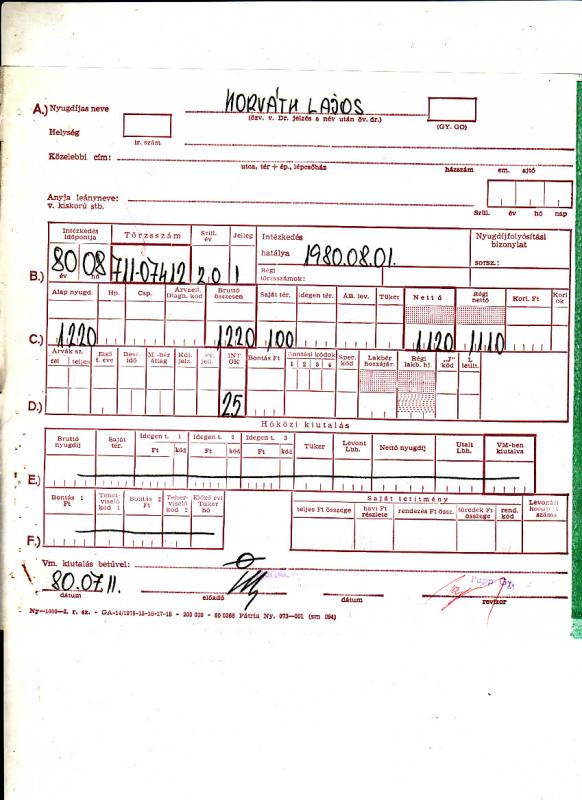 A.) Nyugdíjas neve HORVÁTH LAJOS
(özv. v. Dr. jelzés a név után öv. dr.) (GY. GO)
Helység
ir. szám
Közelebbi cím:
utca, tér + ép., lépcsőház házszám em. ajtó
Anyja leányneve:
v. kiskorú stb.
Szül. év hó nap
B.) Intézkedés időpontja Törzsszám Szül. év Jelleg Intézkedés hatálya 1980.08.01. Nyugdíjfolyósítási bizonylat
80 08 711-07412 20 1 Régi törzsszámok: sorsz.:
év hó
Alap nyugd. Hp. Csp. Árvaell. Diagn. kód Bruttó összesen Saját tér. Idegen tér. Tüker Nettó Régi nettó Korl. Ft Kori ok
C.) 1220 1220 100 1120 1110
Árvák sz. fél teljes Első f. éve Besz. idő M.-bér átlag Kül. jelz. jell. INT. OK Bontás Ft Bontási kódok 1 2 3 4 Spec. kód Lakbér hozzájár. Régi lakb. hj. „J" kód L letilt.
D.) 25
Hóközi kiutalás
Bruttó nyugdíj Saját tér. Idegen t. 1 Ft kód Idegen t. 2 Ft kód Idegen t. 3 Ft kód Tüker Levont Lbh. Nettó nyugdíj Utalt Lbh. VM-ben kiutalva
E.)
Bontás 1 Ft Teherviselő kód 1 Bontás 2 Ft Teherviselő kód 2 Előző évi Tüker hó Saját terítmény
teljes Ft összege havi Ft részlete rendezés Ft össz. töredék Ft összege rend. kód
F.)
Vm. kiutalás betűvel:
80.07.11.
dátum előadó dátum revizor
Papp Gy.